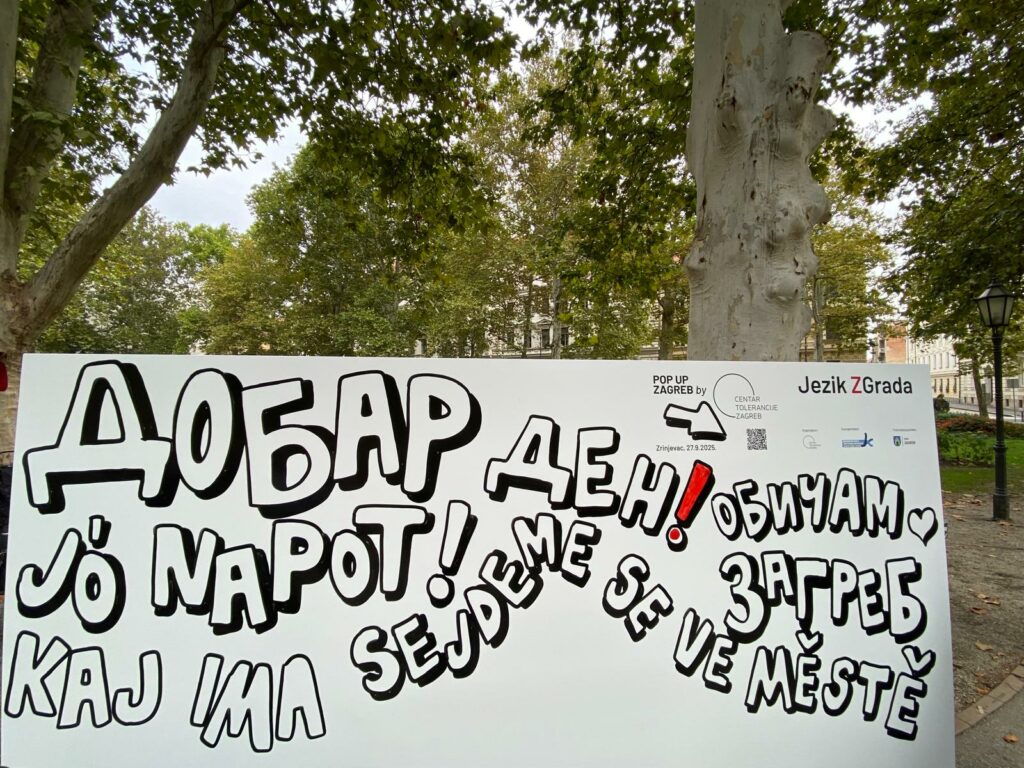 ДОБАР ДЕН!
ОБИЧАМ
ЗАГРЕБ
JÓ NAPOT!
SEJDEME SE VE MĚSTĚ
КАЈ ИМА
POP UP
ZAGREB by
CENTAR
TOLERANCIJE
ZAGREB
Zrinjevac, 27.9.2025.
Jezik ZGrada